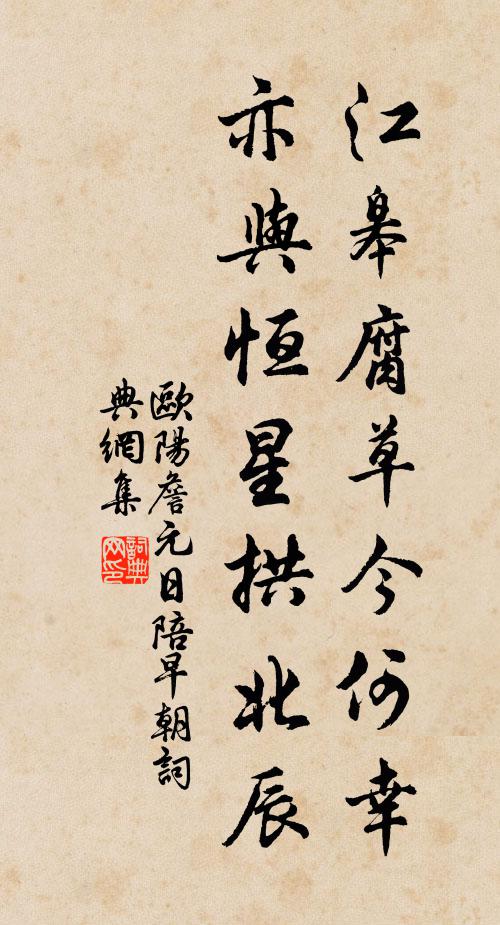 江皋腐草今何幸
亦與恒星拱北辰
歐陽詹元日陪早朝詞
典網集
詞典網印